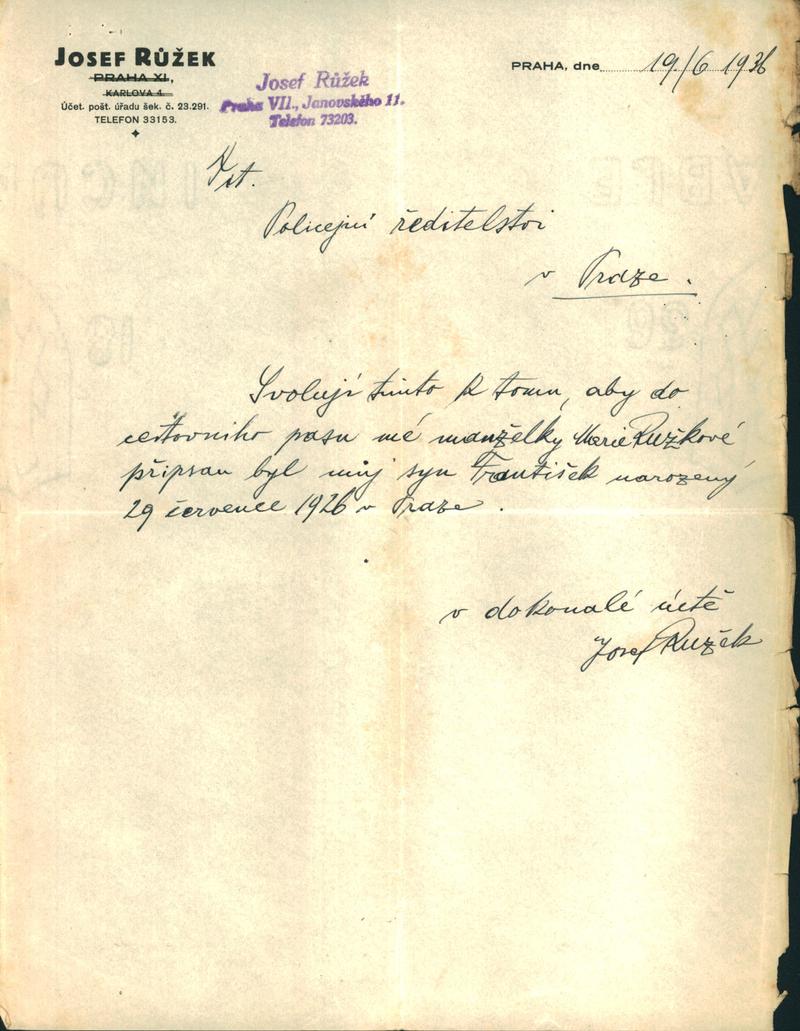 JOSEF RŮŽEK
PRAHA XI.,
KARLOVA 4.
Účet. pošt. úřadu šek. č. 23.291.
TELEFON 33153.
Josef Růžek
Praha VII., Janovského 11.
Telefon 73203.
PRAHA, dne 19/6 1936
Vst.
Policejní ředitelství
v Praze.
Svoluji tímto k tomu, aby do
cestovního pasu mé manželky Marie Ružkové
připsan byl můj syn František narozený
29 července 1926 v Praze.
v dokonalé úctě
Josef Ružek